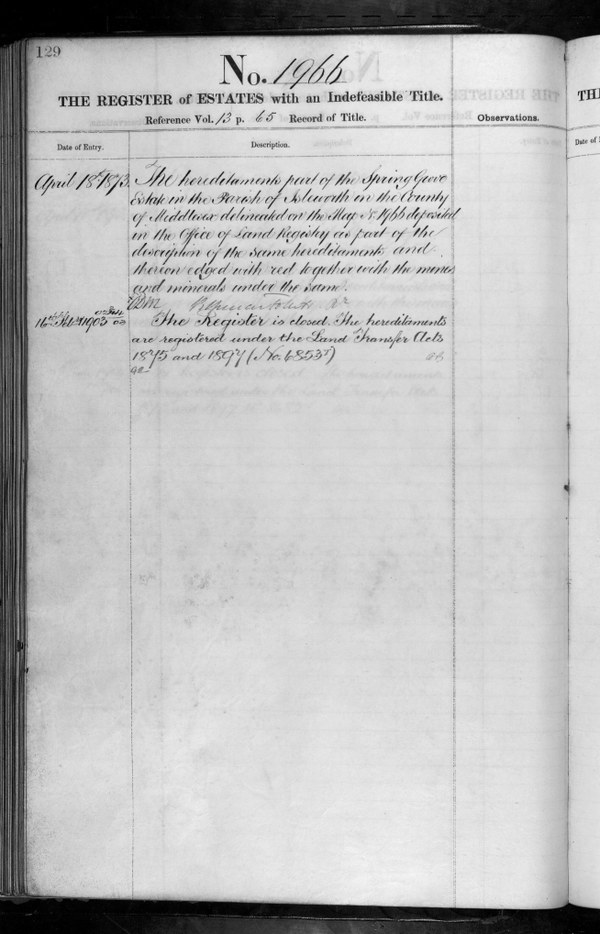 129
No. 1966
THE REGISTER of ESTATES with an Indefeasible Title.
Reference Vol. 13 p. 65 Record of Title.
Date of Entry.
Description.
Observations.
April 18th 1873
The hereditaments part of the Spring Grove
Estate in the Parish of Isleworth in the County
of Middlesex delineated on the Map No 1966 deposited
in the Office of Land Registry as part of the
description of the same hereditaments and
thereon edged with red together with the mines
and minerals under the same.
16th Feby 1903
The Register is closed. The hereditaments
are registered under the Land Transfer Acts
1875 and 1897 (No. 68537)
THE
Date of